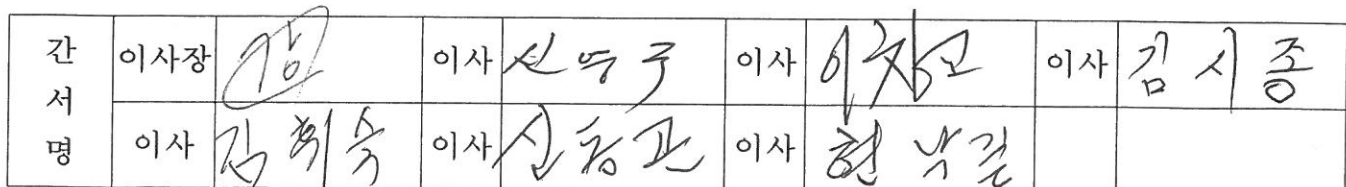 간서명 이사장 이사 신영주 이사 이창고 이사 김시종
이사 김휘숙 이사 신동관 이사 현낙길